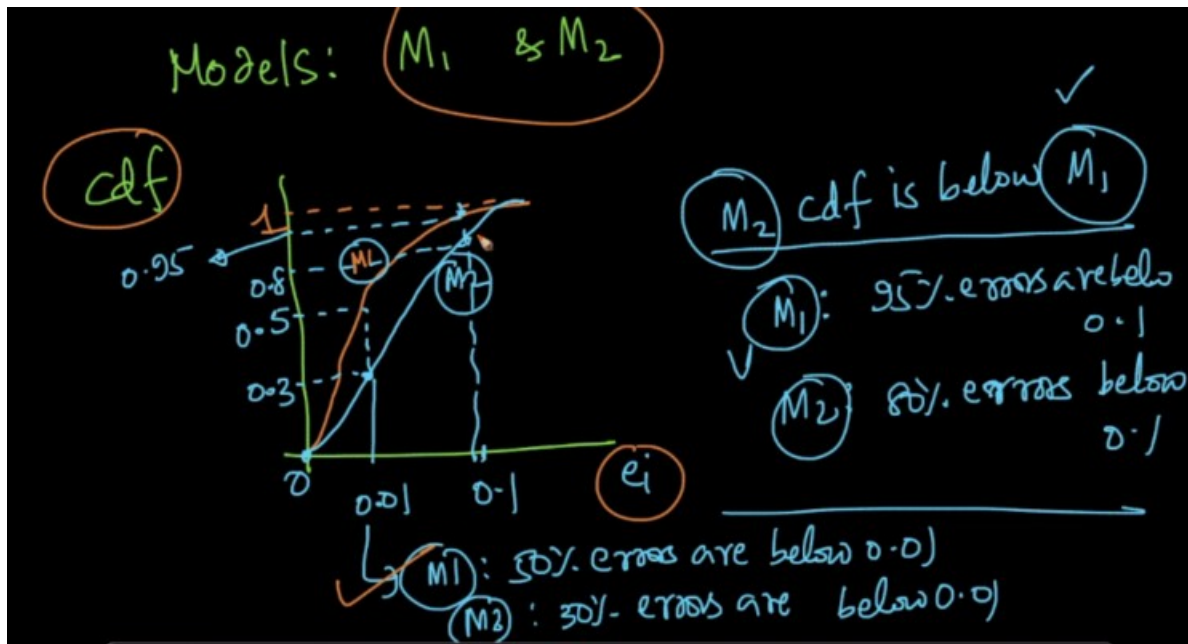 Models: M1 & M2
cdf
1
0.95
0.8
0.5
0.3
M1
M2
0
0.01
0.1
ei
M2 cdf is below M1
M1: 95% errors are belo
0.1
M2: 80% errors below
0.1
M1: 50% errors are below 0.01
M2: 30% errors are below 0.01